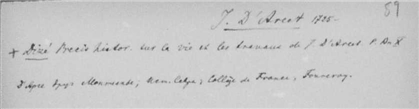 J. D'Arcet 1725-
89
+ Dizé Precis histor. sur la vie et les travaux de J. D'Arcet P. An X
D'Apres Monuments; Collège de France, Fourcroy.